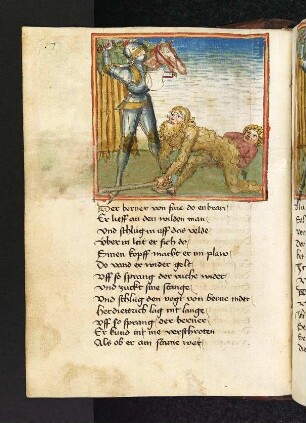 Der berner von sine do enbran
Er lieff an den wilden man
Und schlug in uff das velde
Uber in leit er sich do
Einen kopff macht er im plaw
Do ward er wider gelt
Uff so sprang der ruche wider
Und zuckt sine stange
Und schlug den vogt von berne nider
Her dietterich lag nit lange
Uff so sprang der berner
Er kund nit me verschroten
Als ob er am stame wer